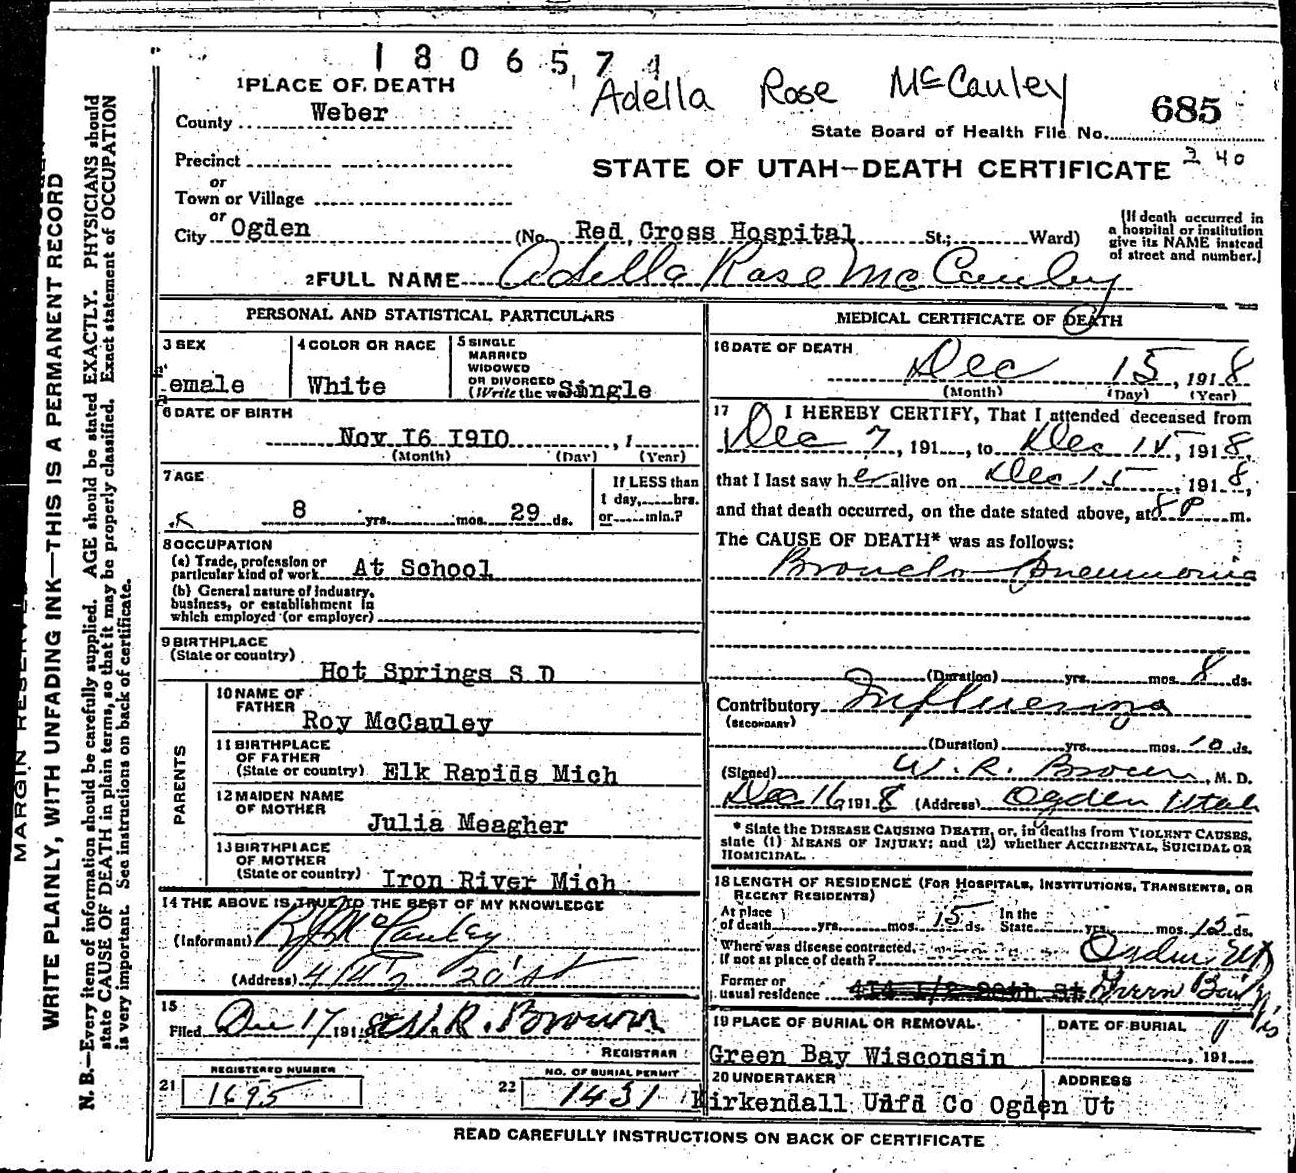 1806571
Adella Rose McCauley
685
1 PLACE OF DEATH
County Weber
State Board of Health File No.
Precinct
STATE OF UTAH—DEATH CERTIFICATE 240
or
Town or Village
or
City Ogden (No. Red Cross Hospital St.; Ward)
(If death occurred in
a hospital or institution
give its NAME instead
of street and number.)
2 FULL NAME Adella Rose McCauley
PERSONAL AND STATISTICAL PARTICULARS
3 SEX
emale
4 COLOR OR RACE
White
5 SINGLE
MARRIED
WIDOWED
OR DIVORCED
(Write the wo Single
6 DATE OF BIRTH
Nov 16 1910, 1
(Month) (Day) (Year)
7 AGE
8 yrs. mos. 29 ds.
If LESS than
1 day, hrs.
or min.?
8 OCCUPATION
(a) Trade, profession or
particular kind of work At School
(b) General nature of Industry,
business, or establishment in
which employed (or employer)
9 BIRTHPLACE
(State or country)
Hot Springs S D
PARENTS
10 NAME OF
FATHER
Roy McCauley
11 BIRTHPLACE
OF FATHER
(State or country) Elk Rapids Mich
12 MAIDEN NAME
OF MOTHER
Julia Meagher
13 BIRTHPLACE
OF MOTHER
(State or country) Iron River Mich
14 THE ABOVE IS TRUE TO THE BEST OF MY KNOWLEDGE
(Informant) McCauley
(Address) 414½ 20' St
15
Filed Dec 17 191 8 W.R. Brown
REGISTRAR
REGISTERED NUMBER
21 1695
NO. OF BURIAL PERMIT
22 1431
MEDICAL CERTIFICATE OF DEATH
16 DATE OF DEATH
Dec 15, 1918
(Month) (Day) (Year)
17 I HEREBY CERTIFY, That I attended deceased from
Dec 7, 191 , to Dec 15, 1918,
that I last saw her alive on Dec 15, 1918,
and that death occurred, on the date stated above, at 8 P m.
The CAUSE OF DEATH* was as follows:
Broncho Pneumonia
(Duration) yrs. mos. 8 ds.
Contributory Influenza
(SECONDARY)
(Duration) yrs. mos. 10 ds.
(Signed) W. R. Brown, M. D.
Dec 16 191 8 (Address) Ogden Utah
* State the DISEASE CAUSING DEATH, or, in deaths from VIOLENT CAUSES,
state (1) MEANS OF INJURY; and (2) whether ACCIDENTAL, SUICIDAL OR
HOMICIDAL.
18 LENGTH OF RESIDENCE (FOR HOSPITALS, INSTITUTIONS, TRANSIENTS, OR
RECENT RESIDENTS)
At place
of death yrs. mos. 15 ds.
In the
State yrs. mos. 15 ds.
Where was disease contracted,
if not at place of death? Ogden Ut
Former or
usual residence 414 1/2 20th St Green Bay Wis
19 PLACE OF BURIAL OR REMOVAL
Green Bay Wisconsin
DATE OF BURIAL
, 191
20 UNDERTAKER
Kirkendall Undfd Co Ogden Ut
ADDRESS
READ CAREFULLY INSTRUCTIONS ON BACK OF CERTIFICATE
MARGIN RESERVE
WRITE PLAINLY, WITH UNFADING INK—THIS IS A PERMANENT RECORD
N. B.—Every item of information should be carefully supplied. AGE should be stated EXACTLY. PHYSICIANS should
state CAUSE OF DEATH in plain terms, so that it may be properly classified. Exact statement of OCCUPATION
is very important. See instructions on back of certificate.